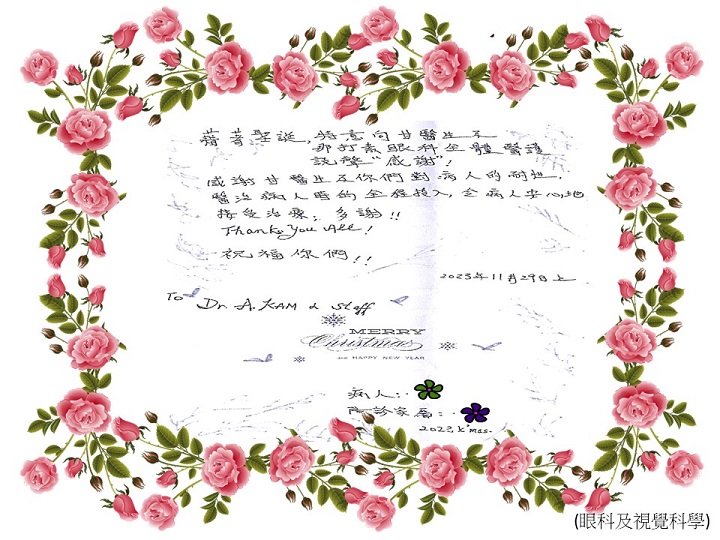 藉著聖誕，特意向甘醫生及
那打素眼科全體醫護
說聲“感謝”！
感謝甘醫生及你們對病人的耐性，
醫治病人時的全程投入，令病人安心地
接受治療，多謝!!
Thank You All!
祝福你們!!
2023年11月29日上
To Dr. A. KAM & Staff
MERRY
Christmas
AND HAPPY NEW YEAR
病人：
陪診家屬：
2023 X'mas.
(眼科及視覺科學)